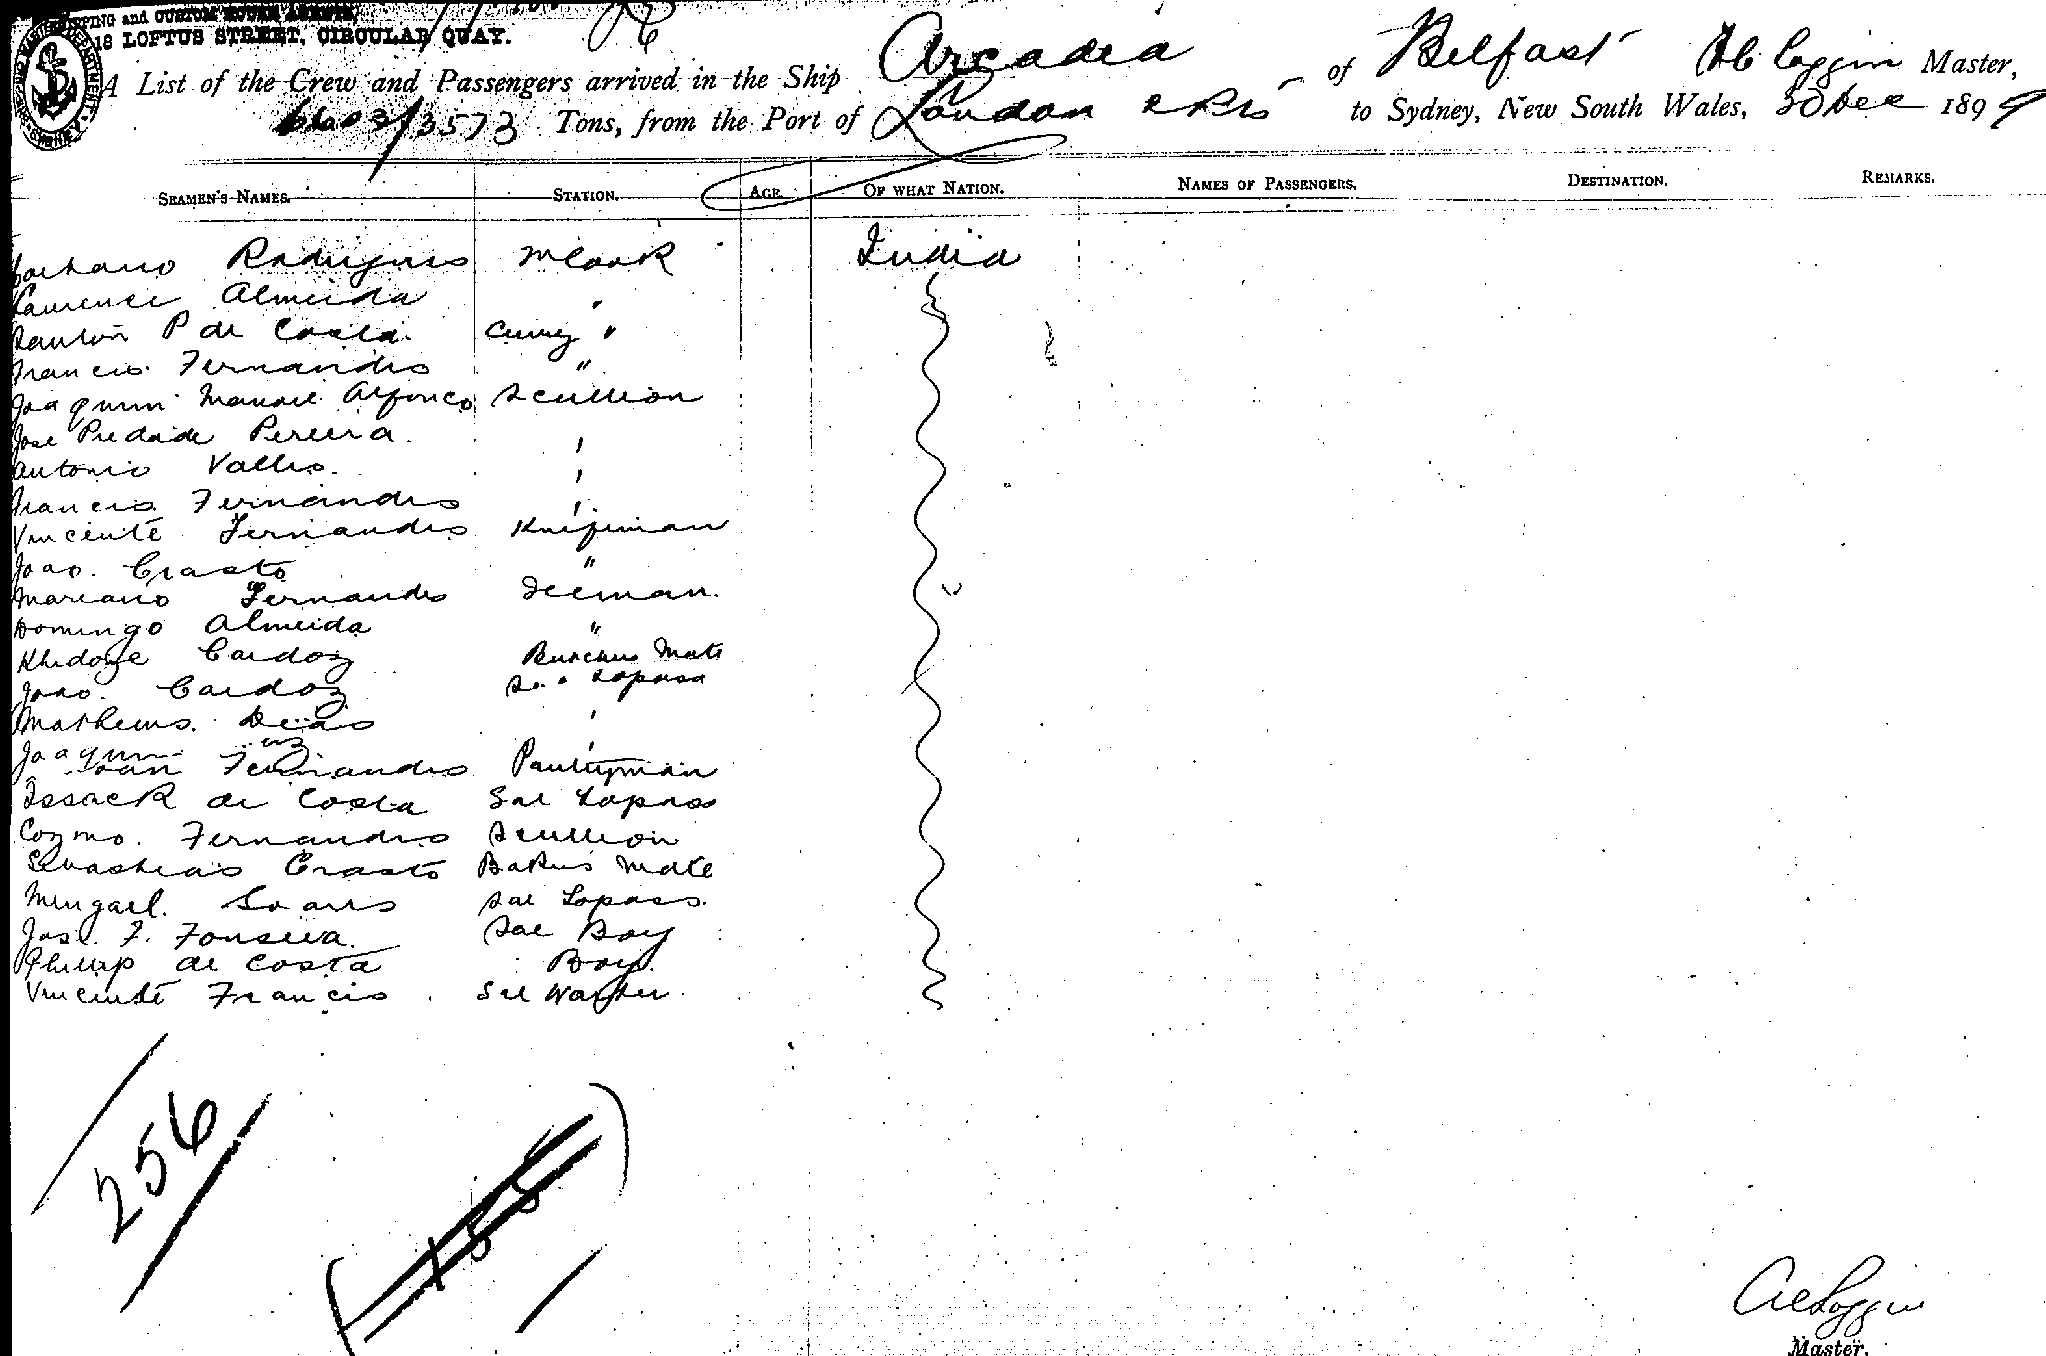 SHIPPING and CUSTOM HOUSE AGENTS,
18 LOFTUS STREET, CIRCULAR QUAY.
A List of the Crew and Passengers arrived in the Ship Arcadia of Belfast Master,
6603/3573 Tons, from the Port of London to Sydney, New South Wales, 30 Dec 1899
SEAMEN'S NAMES. STATION. AGE. OF WHAT NATION. NAMES OF PASSENGERS. DESTINATION. REMARKS.
Rodrigues M Cook India
Laurence Almeida "
P de Costa Curry "
Francis Fernandes "
Joaquim Manoel Alfonco Scullion
Jose Piedade Pereira "
Antonio Valles "
Francis Fernandes "
Vincente Fernandes Knifeman
Joao Crasto "
Mariano Fernandes Iceman
Domingo Almeida "
Cardoz Butchers Mate
Joao Cardoz Topass
Mathews Dias "
Joaquim "
Fernandes Pantryman
Issack de Costa Sal Topass
Cozmo Fernandes Scullion
Sebastiao Crasto Bakers Mate
Mingael Soares Sal Topass
Jose F. Fonseca Sal Boy
Phillip de Costa Boy
Vincente Francis Sal Waiter
256
Master.